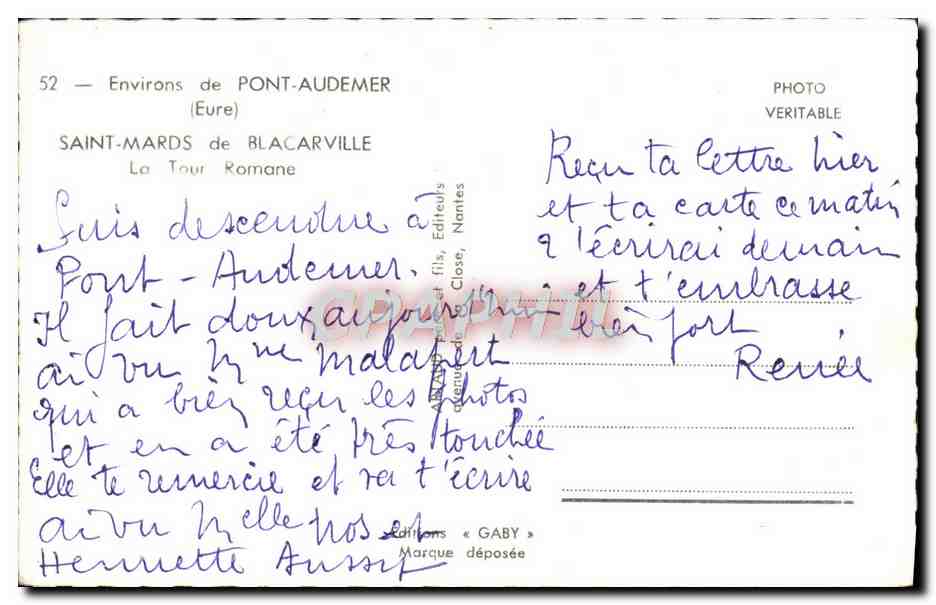 52 — Environs de PONT-AUDEMER
(Eure)
SAINT-MARDS de BLACARVILLE
La Tour Romane
PHOTO
VERITABLE
Suis descendue à
Pont-Audemer.
Il fait doux aujourd'hui
ai vu Mme Malapert
qui a bien reçu les photos
et en a été très touchée
Elle te remercie et va t'écrire
ai vu Melle Nos et
Henriette
Reçu ta lettre hier
et ta carte ce matin
t'écrirai demain
et t'embrasse
bien fort
Renée
ARTAUD père et fils, Editeurs
avenue de Close, Nantes
Editions « GABY »
Marque déposée
CPAPHIL